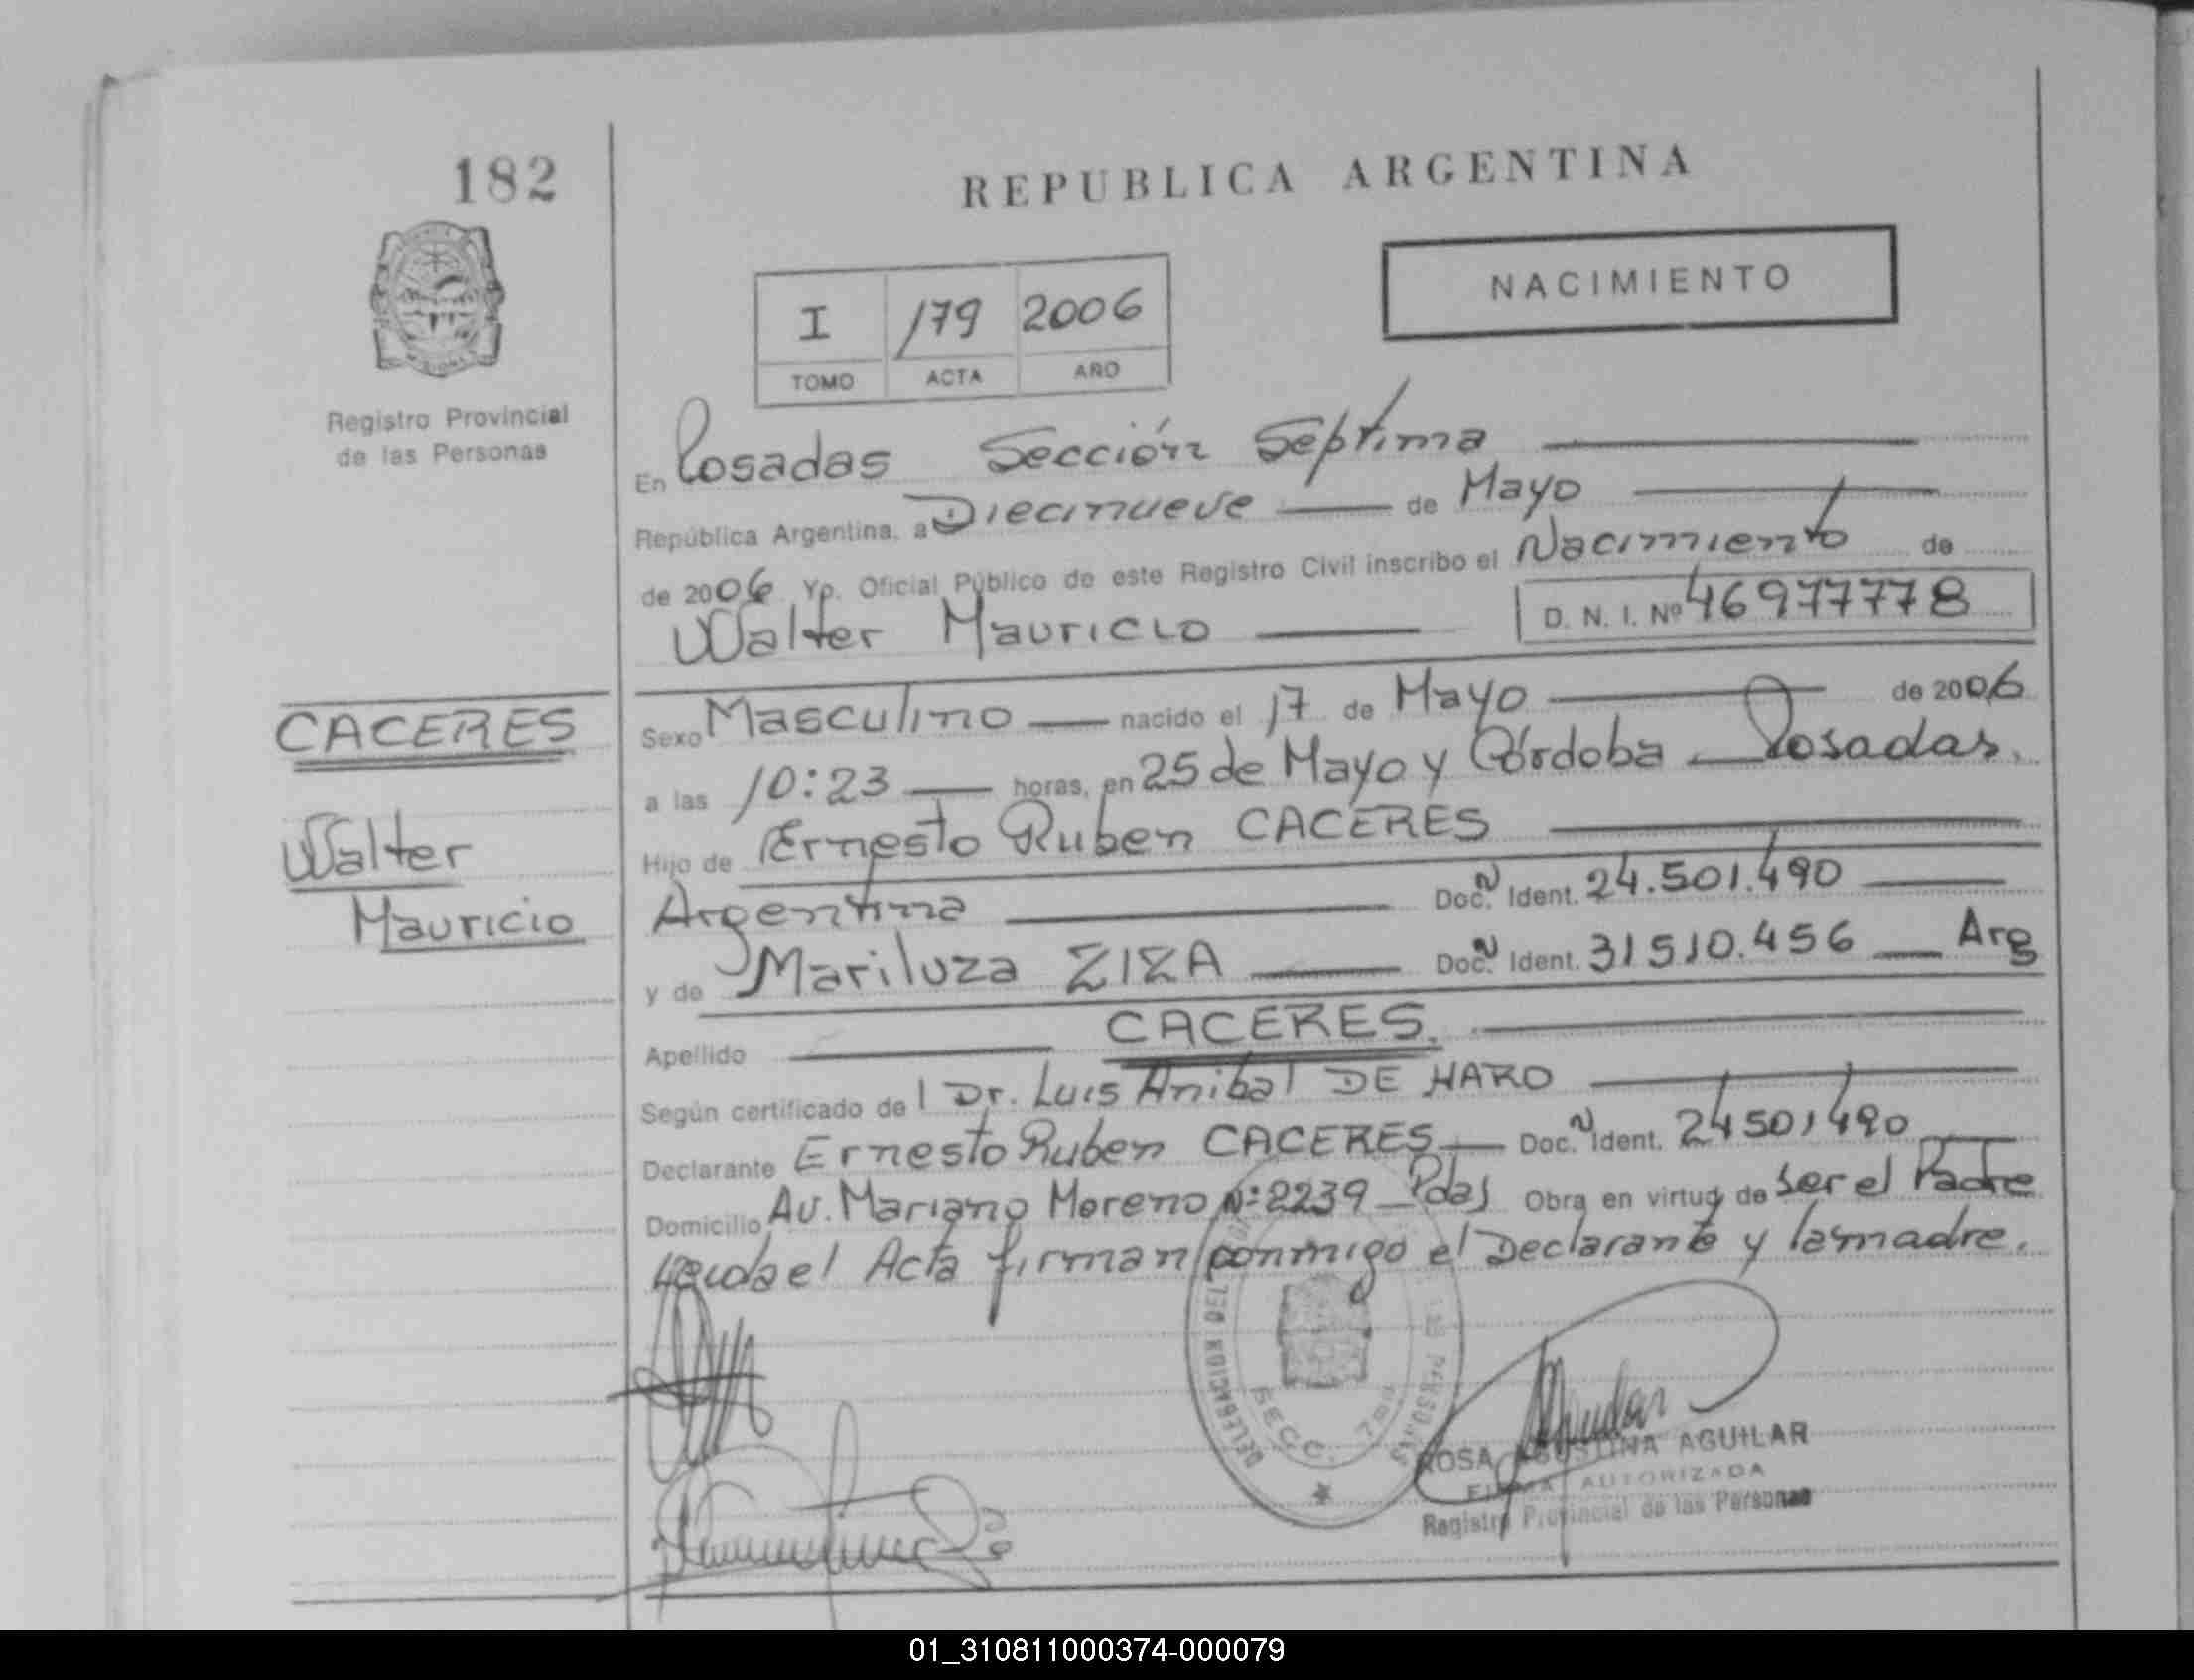 182
REPUBLICA ARGENTINA
NACIMIENTO
I /179 2006
TOMO ACTA AÑO
Registro Provincial
de las Personas
En Posadas Sección Séptima
República Argentina, a Diecinueve de Mayo
de 2006 Yo, Oficial Público de este Registro Civil inscribo el Nacimiento de
Walter Mauricio D. N. I. Nº 46977778
CACERES
Walter
Mauricio
Sexo Masculino nacido el 17 de Mayo de 2006
a las 10:23 horas, en 25 de Mayo y Córdoba Posadas.
Hijo de Ernesto Ruben CACERES
Argentina Doc. N Ident. 24.501.490
y de Mariluza ZIZA Doc. N Ident. 31510.456 Arg
Apellido CACERES.
Según certificado de l Dr. Luis Anibal DE HARO
Declarante Ernesto Ruben CACERES Doc. N Ident. 24501490
Domicilio Av. Mariano Moreno Nº 2239 Pdas Obra en virtud de ser el Padre
Leída el Acta firman conmigo el Declarante y la madre.
DELEGACION DEL PERSONAS
SECC. 7ma
ROSA AGUSTINA AGUILAR
FIRMA AUTORIZADA
Registro Provincial de las Personas
01_310811000374-000079